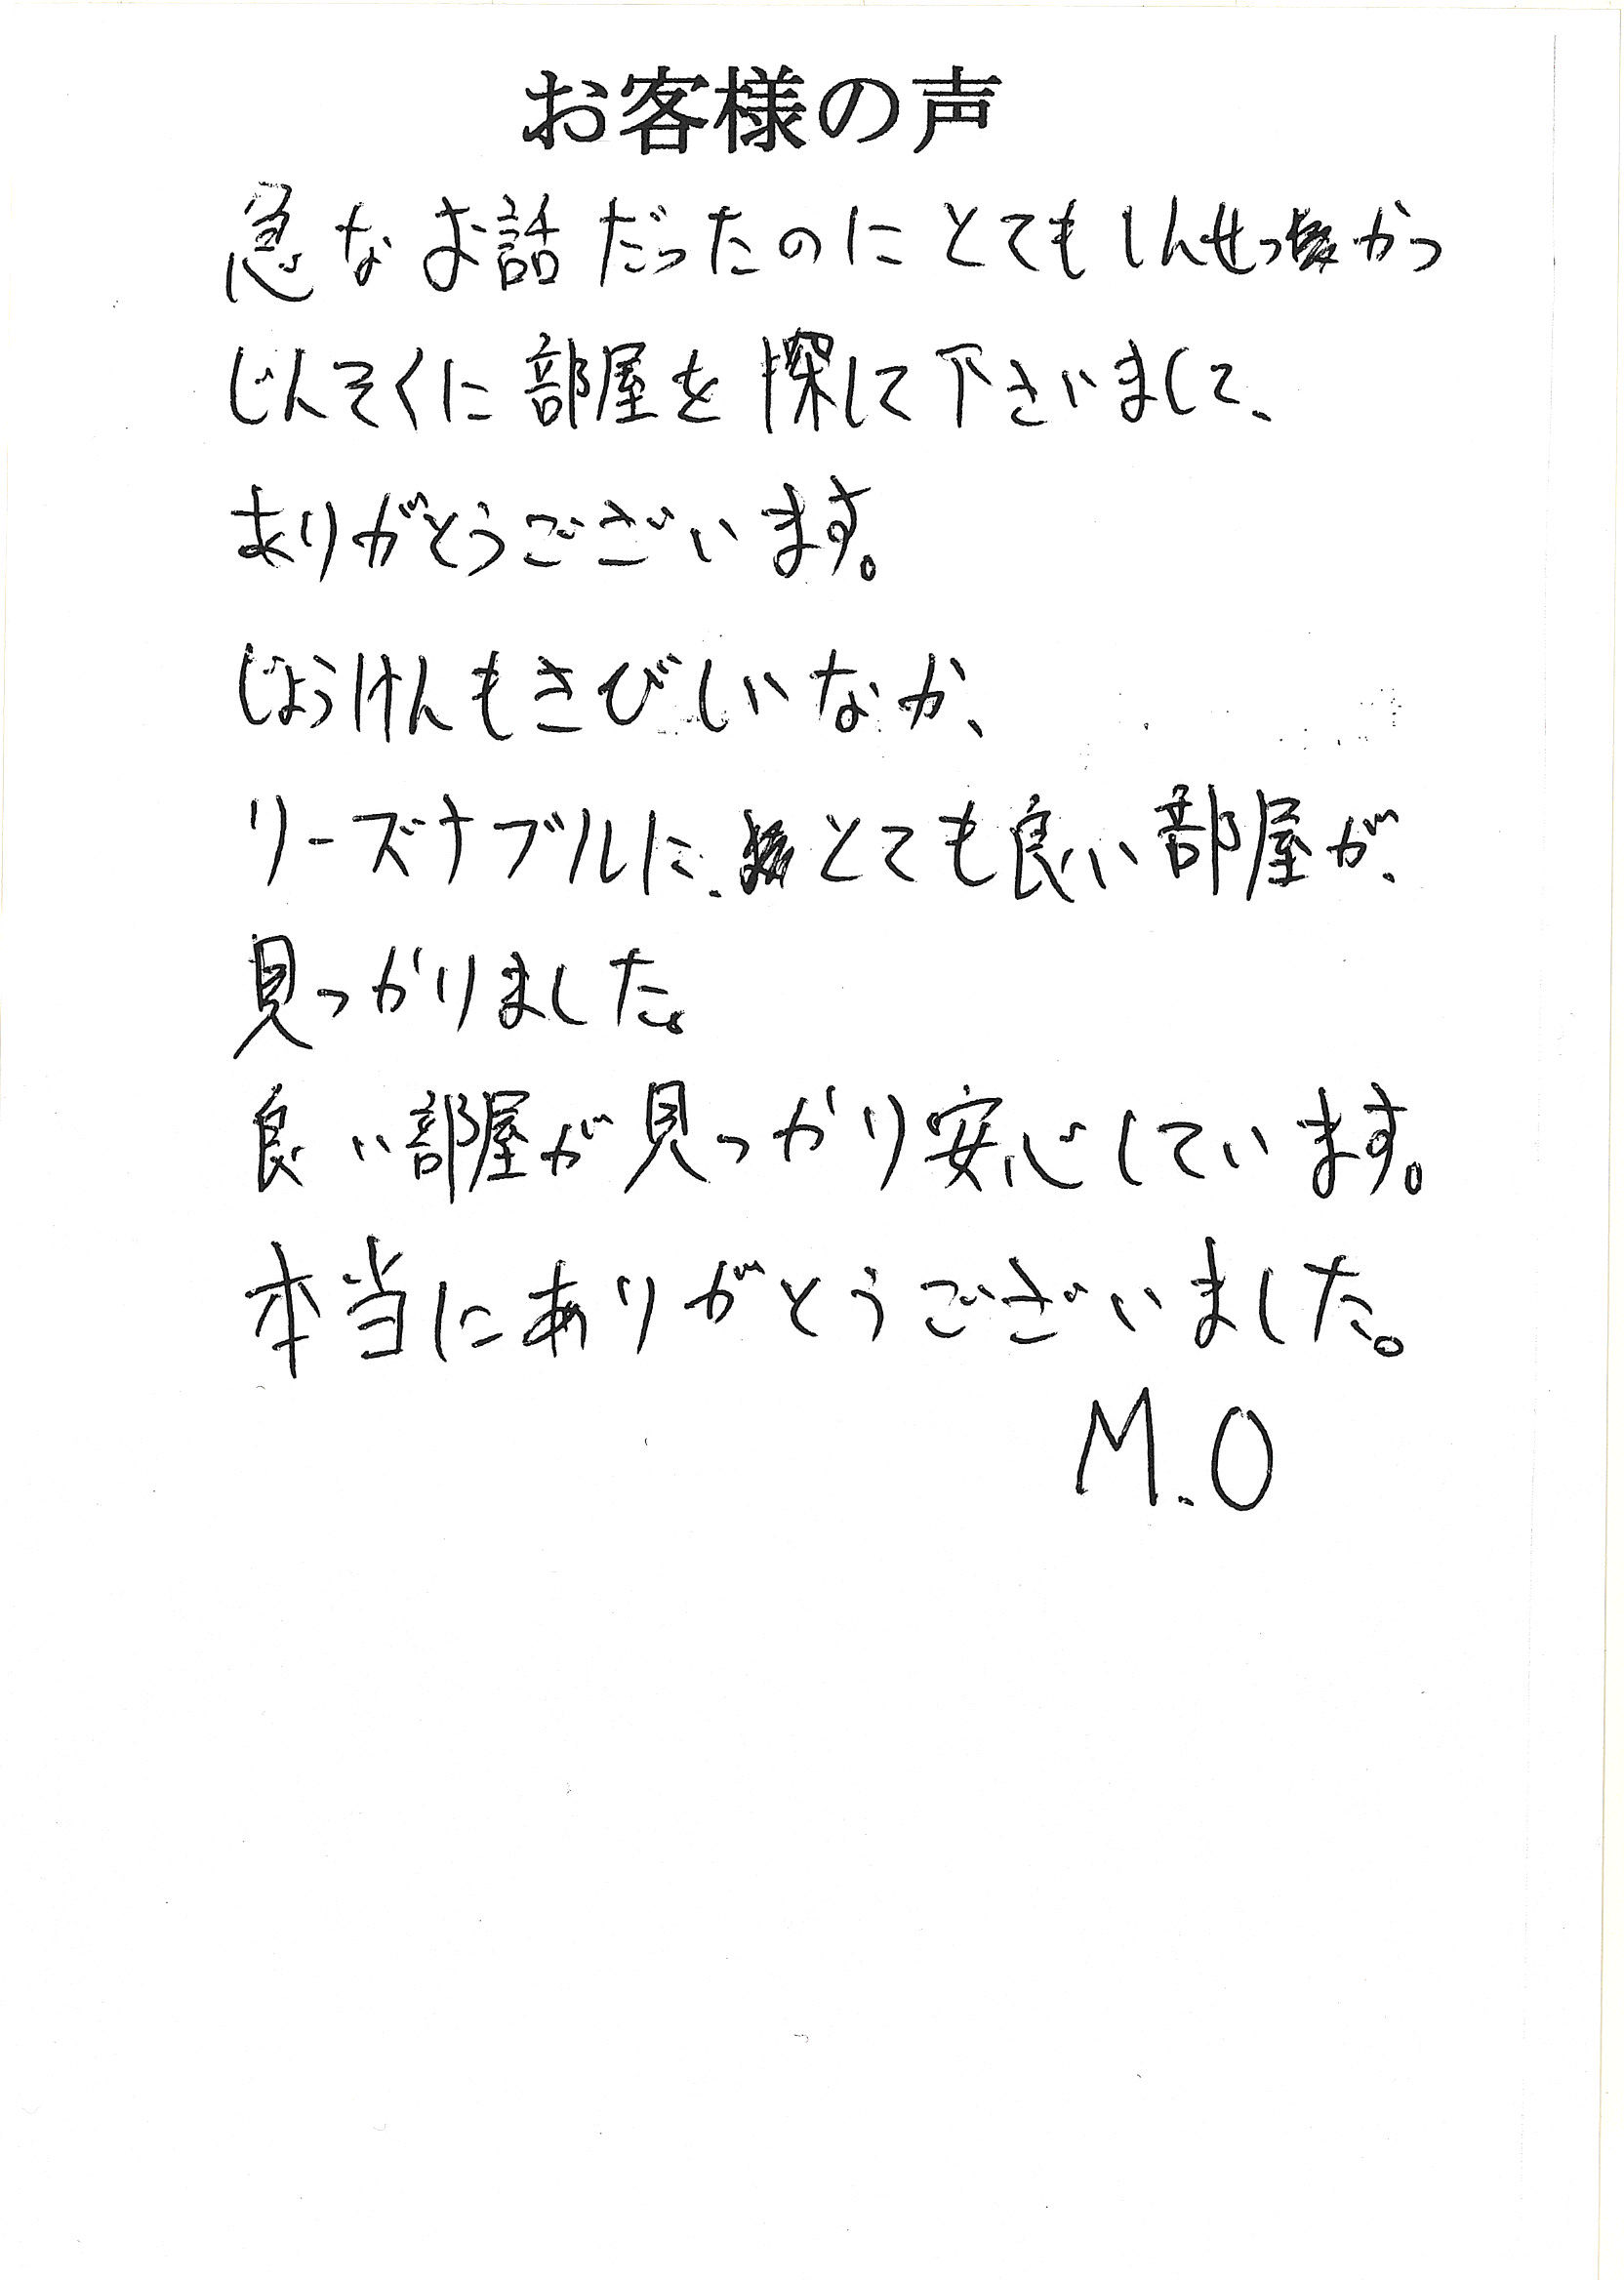 お客様の声
急なお話だったのにとてもしんせつかつ
じんそくに部屋を探して下さいまして、
ありがとうございます。
じょうけんもきびしいなか、
リーズナブルに、とても良い部屋が、
見つかりました。
良い部屋が見つかり安心しています。
本当にありがとうございました。
M.O